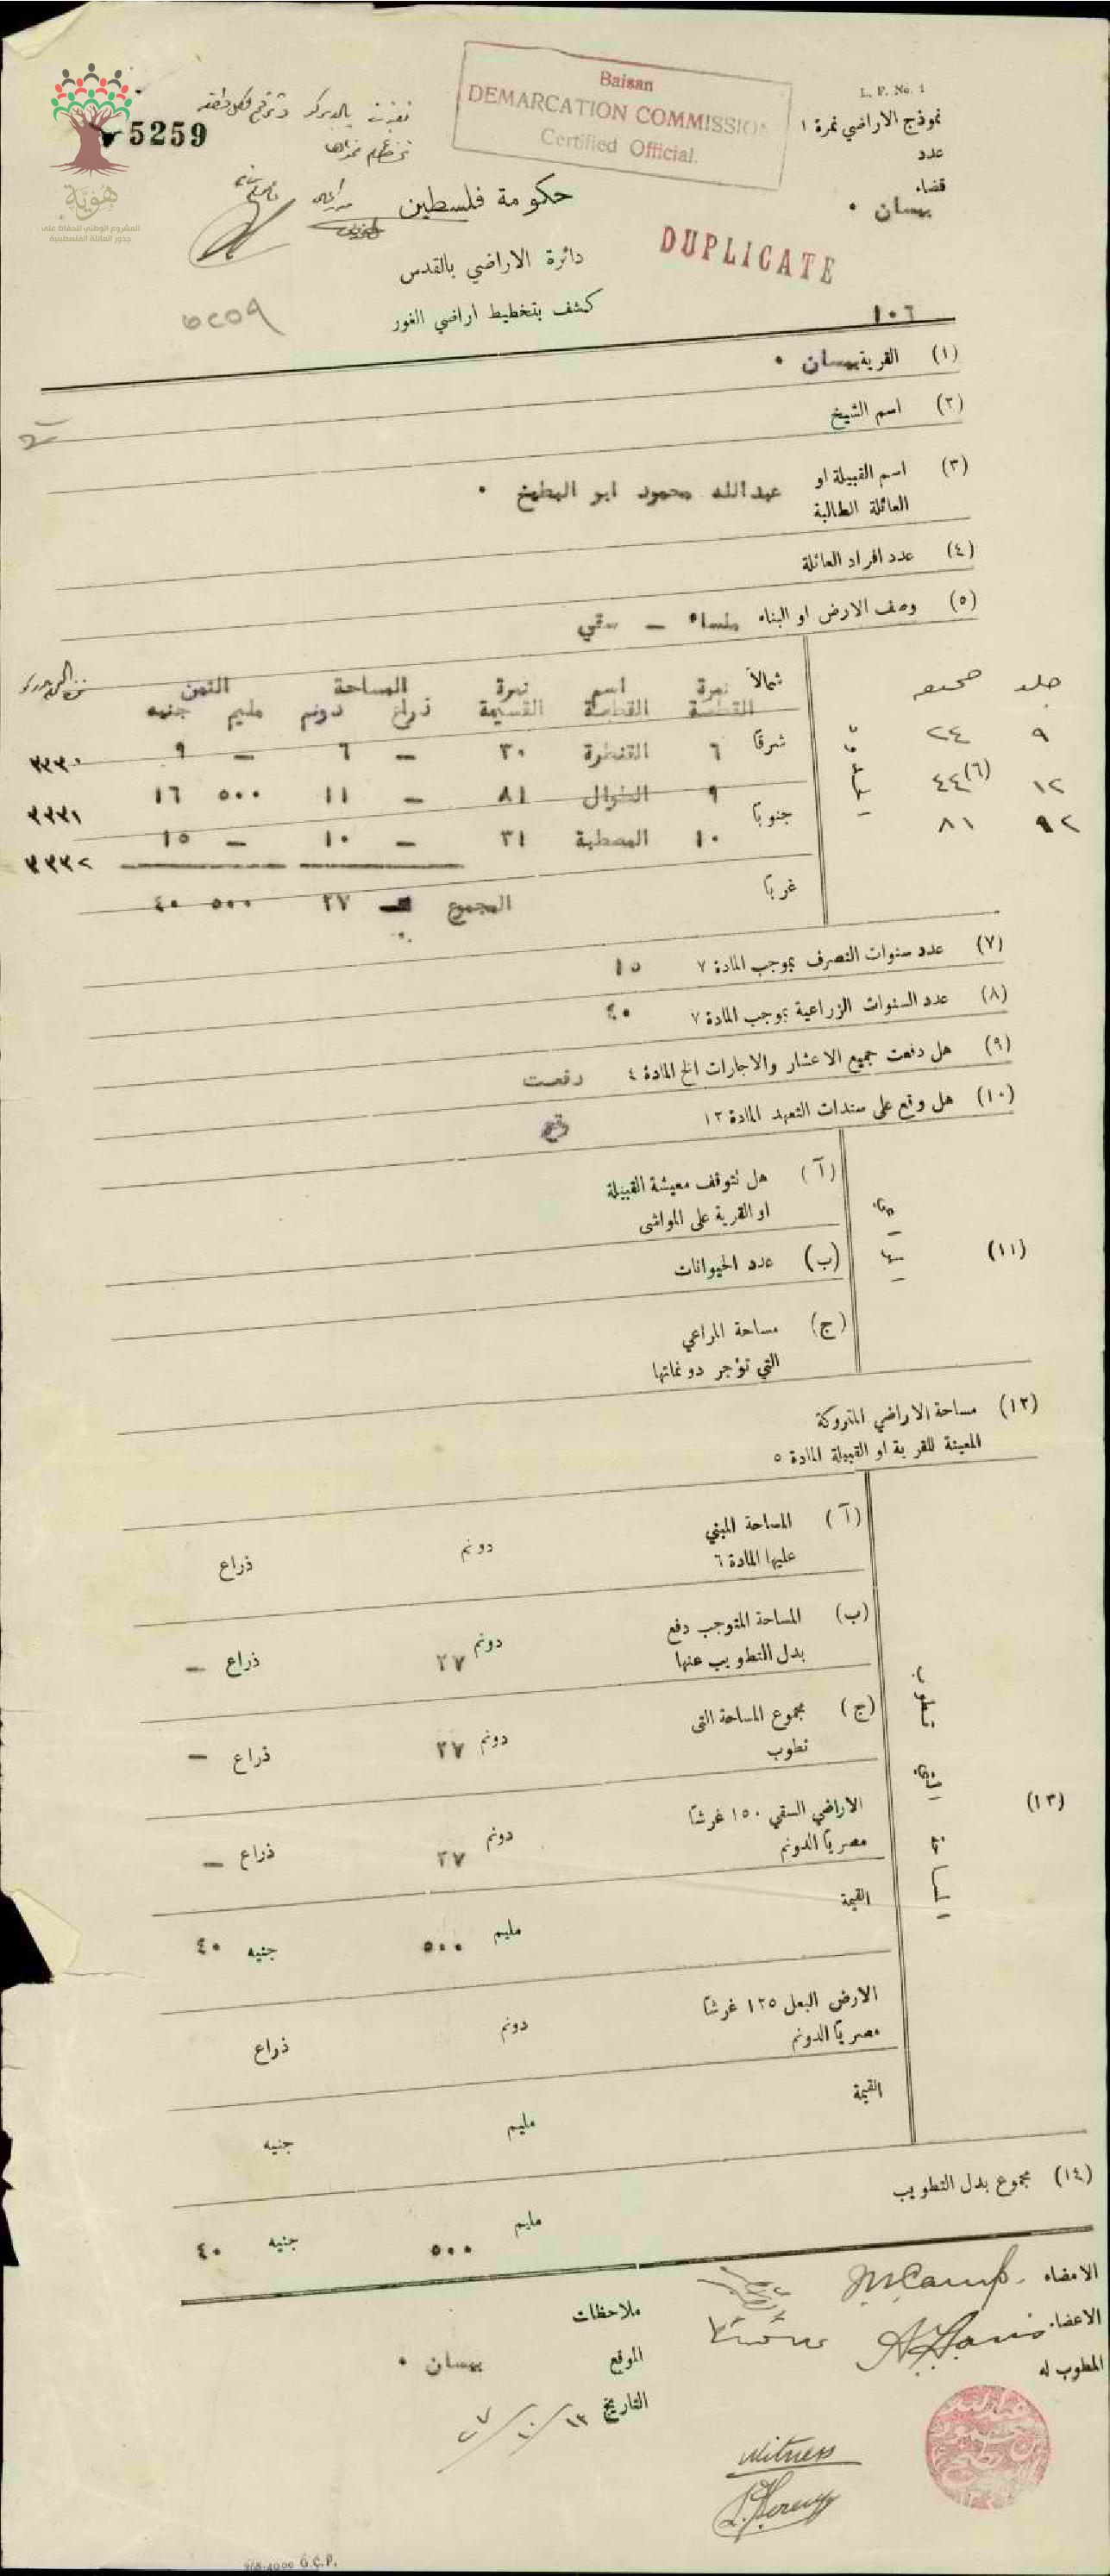 L. F. No. 1
نموذج الاراضي نمرة ١
عدد
قضاء
بيسان ٠
Baisan
DEMARCATION COMMISSION
Certified Official.
DUPLICATE
5259
هُوِيَّة
المشروع الوطني للحفاظ على
جذور العائلة الفلسطينية
حكومة فلسطين
دائرة الاراضي بالقدس
كشف بتخطيط اراضي الغور
٥٢٥٩
١٠٦
(١) القرية بيسان ٠
(٢) اسم الشيخ
(٣) اسم القبيلة او
العائلة الطالبة
عبدالله محمود ابو البطيخ ٠
(٤) عدد افراد العائلة
(٥) وصف الارض او البناء ملساء — سقي
جلد صحيفه
٩ ٢٤
١٢ ٤٤
٩٢ ٨١
(٦) الحدود
شمالاً
شرقاً
جنوباً
غرباً
نمرة القطعة اسم القطعة نمرة القسيمة المساحة الثمن
ذراع دونم مليم جنيه
٦ القنطرة ٣٠ — ٦ — ٩ ٣٣٣٠
٩ الطوال ٨١ — ١١ ٥٠٠ ١٦ ٣٣٣١
١٠ المصطبة ٣١ — ١٠ — ١٥ ٣٣٣٢
المجموع — ٢٧ ٥٠٠ ٤٠
(٧) عدد سنوات التصرف بموجب المادة ٧ ١٥
(٨) عدد السنوات الزراعية بموجب المادة ٧ ٤٠
(٩) هل دفعت جميع الاعشار والاجارات الخ المادة ٤ دفعت
(١٠) هل وقع على سندات التعهد المادة ١٣
(١١)
(آ) هل تتوقف معيشة القبيلة
او القرية على المواشي
(ب) عدد الحيوانات
(ج) مساحة المراعي
التي تؤجر دونماتها
(١٢) مساحة الاراضي المتروكة
المعينة للقرية او القبيلة المادة ٥
(١٣) المساحة التي تطوب
(آ) المساحة المبني
عليها المادة ٦ دونم ذراع
(ب) المساحة المتوجب دفع
بدل التطويب عنها دونم ٢٧ ذراع —
(ج) مجموع المساحة التي
تطوب دونم ٢٧ ذراع —
الاراضي السقي ١٥٠ غرشاً
مصرياً الدونم دونم ٢٧ ذراع —
القيمة مليم ٥٠٠ جنيه ٤٠
الارض البعل ١٢٥ غرشاً
مصرياً الدونم دونم ذراع
القيمة مليم جنيه
(١٤) مجموع بدل التطويب مليم ٥٠٠ جنيه ٤٠
الامضاء
الاعضاء
المطوب له
ملاحظات
الموقع بيسان ٠
التاريخ ١٣/١٠/٢٧
Witness
968-4000 G.C.P.